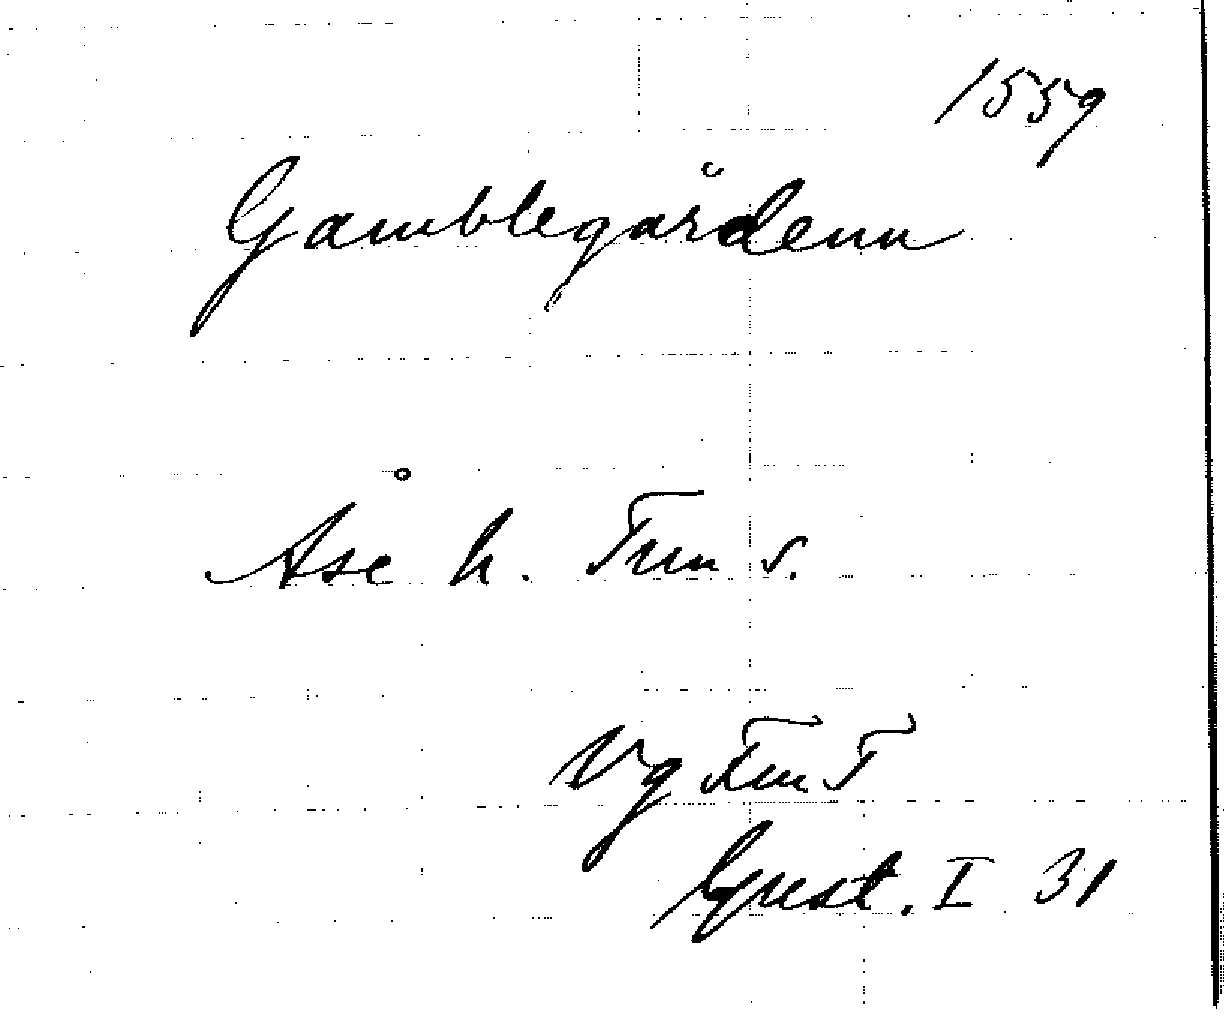 1559
Gamblegårdenn
Åse h. Tun s.
Vg Tun T
Gust. I 31